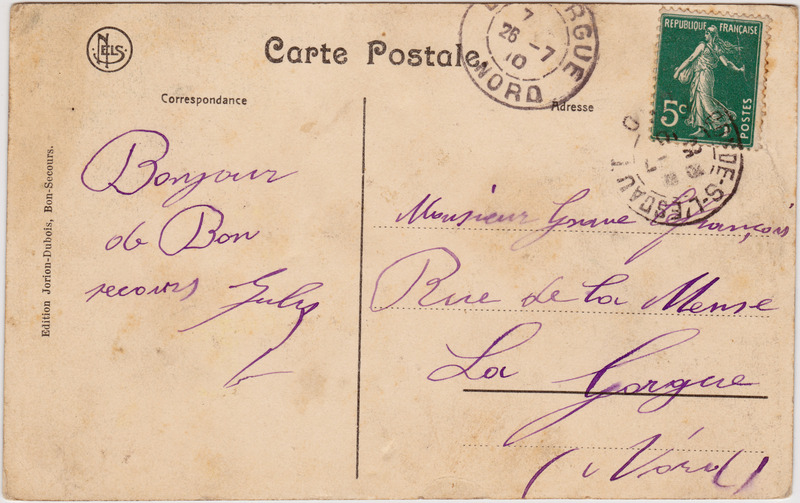 NELS
Carte Postale
Correspondance
Adresse
RGUE
7
26 -7
10
NORD
REPUBLIQUE FRANÇAISE
5c
POSTES
DE-S-L'ES
Edition Jorion-Dubois, Bon-Secours.
Bonjour
de Bon
secours
Monsieur François
Rue de la Meuse
La Gorgue
(Nord)